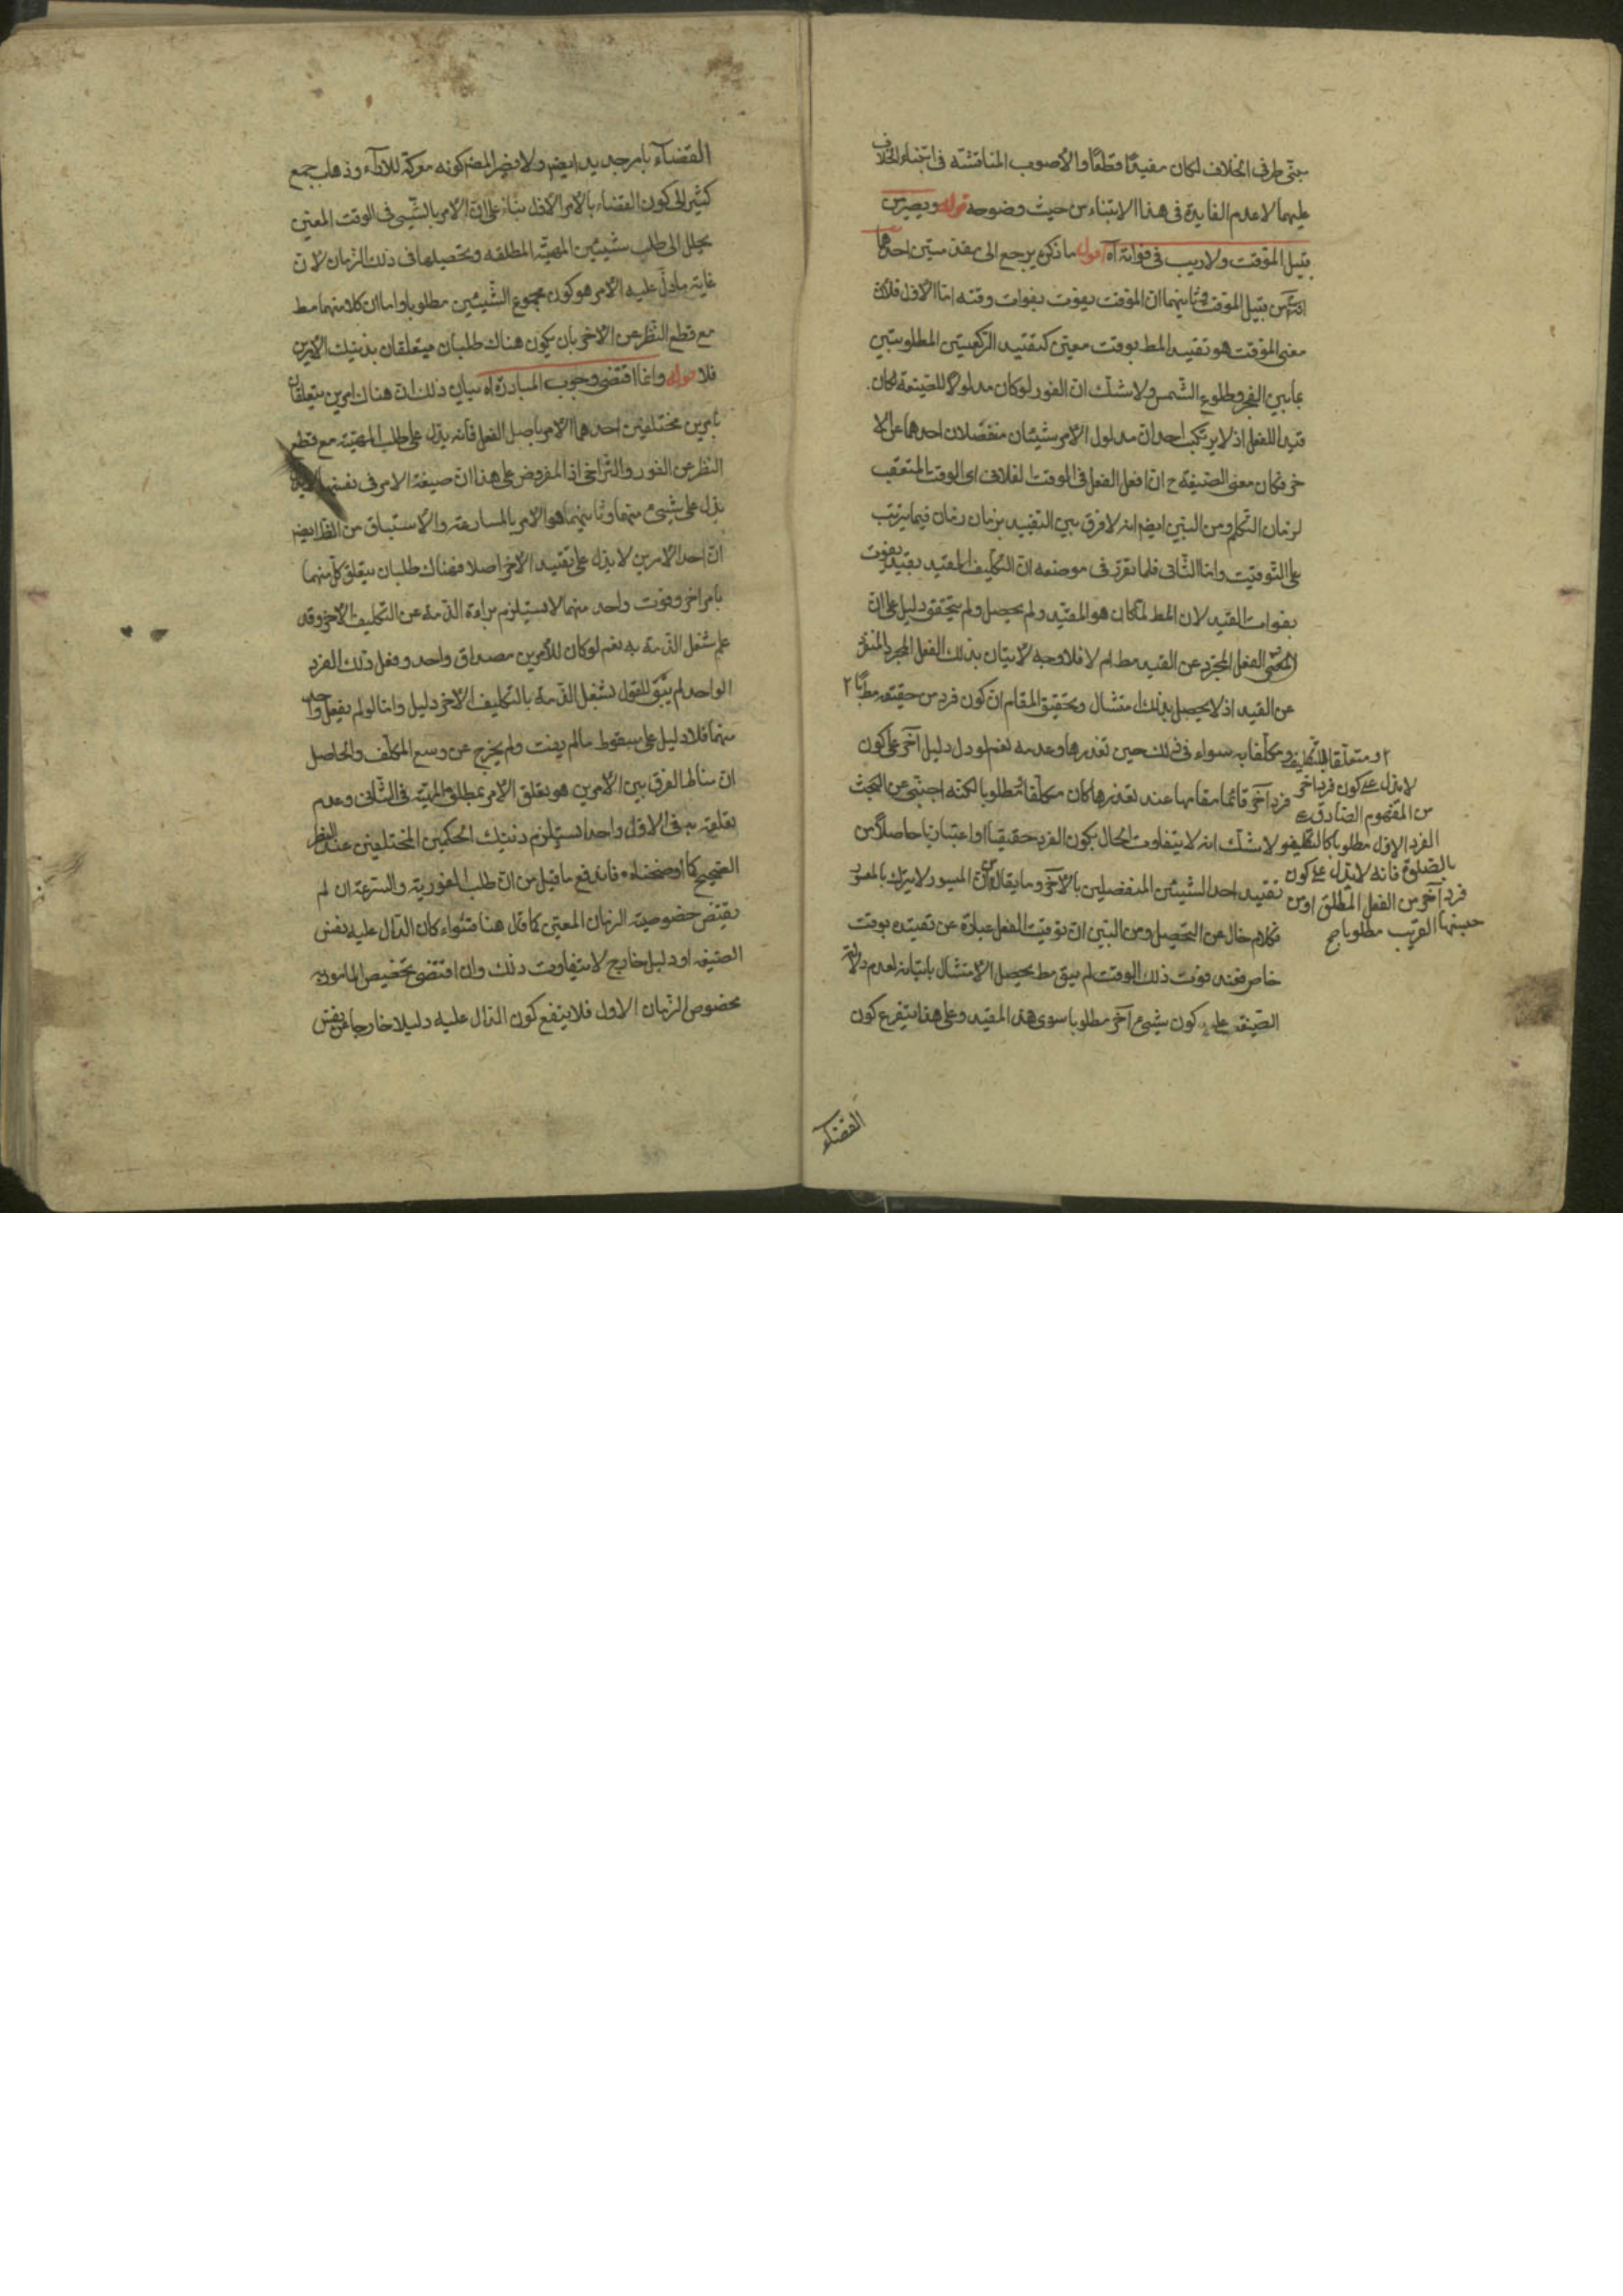 مبنى طرفى الخلاف لكان مفيدا قطعا والأصوب المناقشة فى ابتناء الخلاف
عليهما لا عدم الفايدة فى هذا الابتناء من حيث وضوحه قوله ويصير من
قبيل الموقت ولا ريب فى فواته آه اقول ما ذكره يرجع الى مقدمتين احدهما
انه من قبيل الموقت وثانيهما ان الموقت يفوت بفوات وقته اما الاول فلان
معنى الموقت هو تقييد المط بوقت معين كتقييد الركعتين المطلوبتين
بما بين الفجر وطلوع الشمس ولا شك ان الفور لو كان مدلولا للصيغة لكان
قيدا للفعل اذ لا يرتكب احد ان مدلول الأمر شيئان منفصلان احدهما عن الا
خر فكان معنى الصيغة ح ان افعل الفعل فى الوقت الفلانى اى الوقت المتعقب
لزمان التكلم ومن البين ايضم انه لا فرق بين التقييد بزمان زمان فيما يترتب
على التوقيت واما الثانى فلما تقرر فى موضعه ان التكليف المقيد بقيد يفوت
بفوات القيد لان المط لما كان هو المقيد ولم يحصل ولم يتحقق دليل على ان
الفعل المجرد عن القيد مط ام لا فلا وجه لاتيان بذلك الفعل المجرد المنفرد
عن القيد اذ لا يحصل بذلك امتثال وتحقيق المقام ان كون فرد من حقيقة مطلوبا ٢
ومكلفا به سواء فى ذلك حين تعذرها وعدمه نعم لو دل دليل آخر على كون
فرد آخر قائما مقامها عند تعذرها كان مكلفا مطلوبا لكنه اجنبى عن البحث
ولا شك انه لا يتفاوت الحال بكون الفرد حقيقيا او اعتباريا حاصلا من
تقييد احد الشيئين المنفصلين بالآخر وما يقال من ان الميسور لا يترك بالمعسور
فكلام خال عن التحصيل ومن البين ان توقيت الفعل عبارة عن تقييده بوقت
خاص فعند فوت ذلك الوقت لم يبق مط يحصل الامتثال باتيانه لعدم دلالة
الصيغة على كون شيئ آخر مطلوبا سوى هذا المقيد وعلى هذا يتفرع كون
٢ او متعلقا للتكليف
لا يدل على كون فرد آخر
من المفهوم الصادق على
الفرد الاول مطلوبا كالتكليف
بالصلوة فانه لا يدل على كون
فرد آخر من الفعل المطلق او من
جنسها القريب مطلوبا صح
القضاء
القضاء بامر جديد ايضم ولا يضر المضر كونه معركة للآراء وذهاب جمع
كثير الى كون القضاء بالأمر الأول بناء على ان الأمر بالشيئ فى الوقت المعين
يحلل الى طلب شيئين المهية المطلقه وتحصيلها فى ذلك الزمان لان
غاية ما دل عليه الأمر هو كون مجموع الشيئين مطلوبا واما ان كلا منهما مط
مع قطع النظر عن الآخر بان يكون هناك طلبان يتعلقان بذينك الأمرين
فلا قوله وانما اقتضى وجوب المبادرة اه بيان ذلك ان هناك امرين يتعلقان
بامرين مختلفين احدهما الأمر باصل الفعل فانه يدل على طلب المهية مع قطع
النظر عن الفور والتراخى اذ المفروض على هذا ان صيغة الامر فى نفسها
يدل على شيئ منهما وثانيهما هو الأمر بالمسارعة والاستباق من الظ ايضم
ان احد الامرين لا يدل على تقييد الآخر اصلا فهناك طلبان يتعلق كل منهما
بامر آخر وفوت واحد منهما لا يستلزم براءة الذمة عن التكليف الآخر وقد
علم شغل الذمة به نعم لو كان للأمرين مصداق واحد وفعل ذلك الفرد
الواحد لم يبق للقول بشغل الذمة بالتكليف الآخر دليل واما لو لم يفعل واحد
منهما فلا دليل على سقوط ما لم يفت ولم يخرج عن وسع المكلف والحاصل
ان مناط الفرق بين الأمرين هو تعلق الأمر بمطلق المهية فى الثانى وعدم
تعلقه به فى الاول واحدا يستلزم ذينك الحكمين المختلفين عند النظر
الصحيح كما اوضحناه فاندفع ما قيل من ان طلب الفورية والسرعة ان لم
يقتض خصوصية الزمان المعين كما قال هنا فسواء كان الدال عليه نفس
الصيغة او دليل خارج لا يتفاوت ذلك وان اقتضى تخصيص المامور به
بخصوص الزمان الاول فلا ينفع كون الدال عليه دليلا خارجا عن نفس